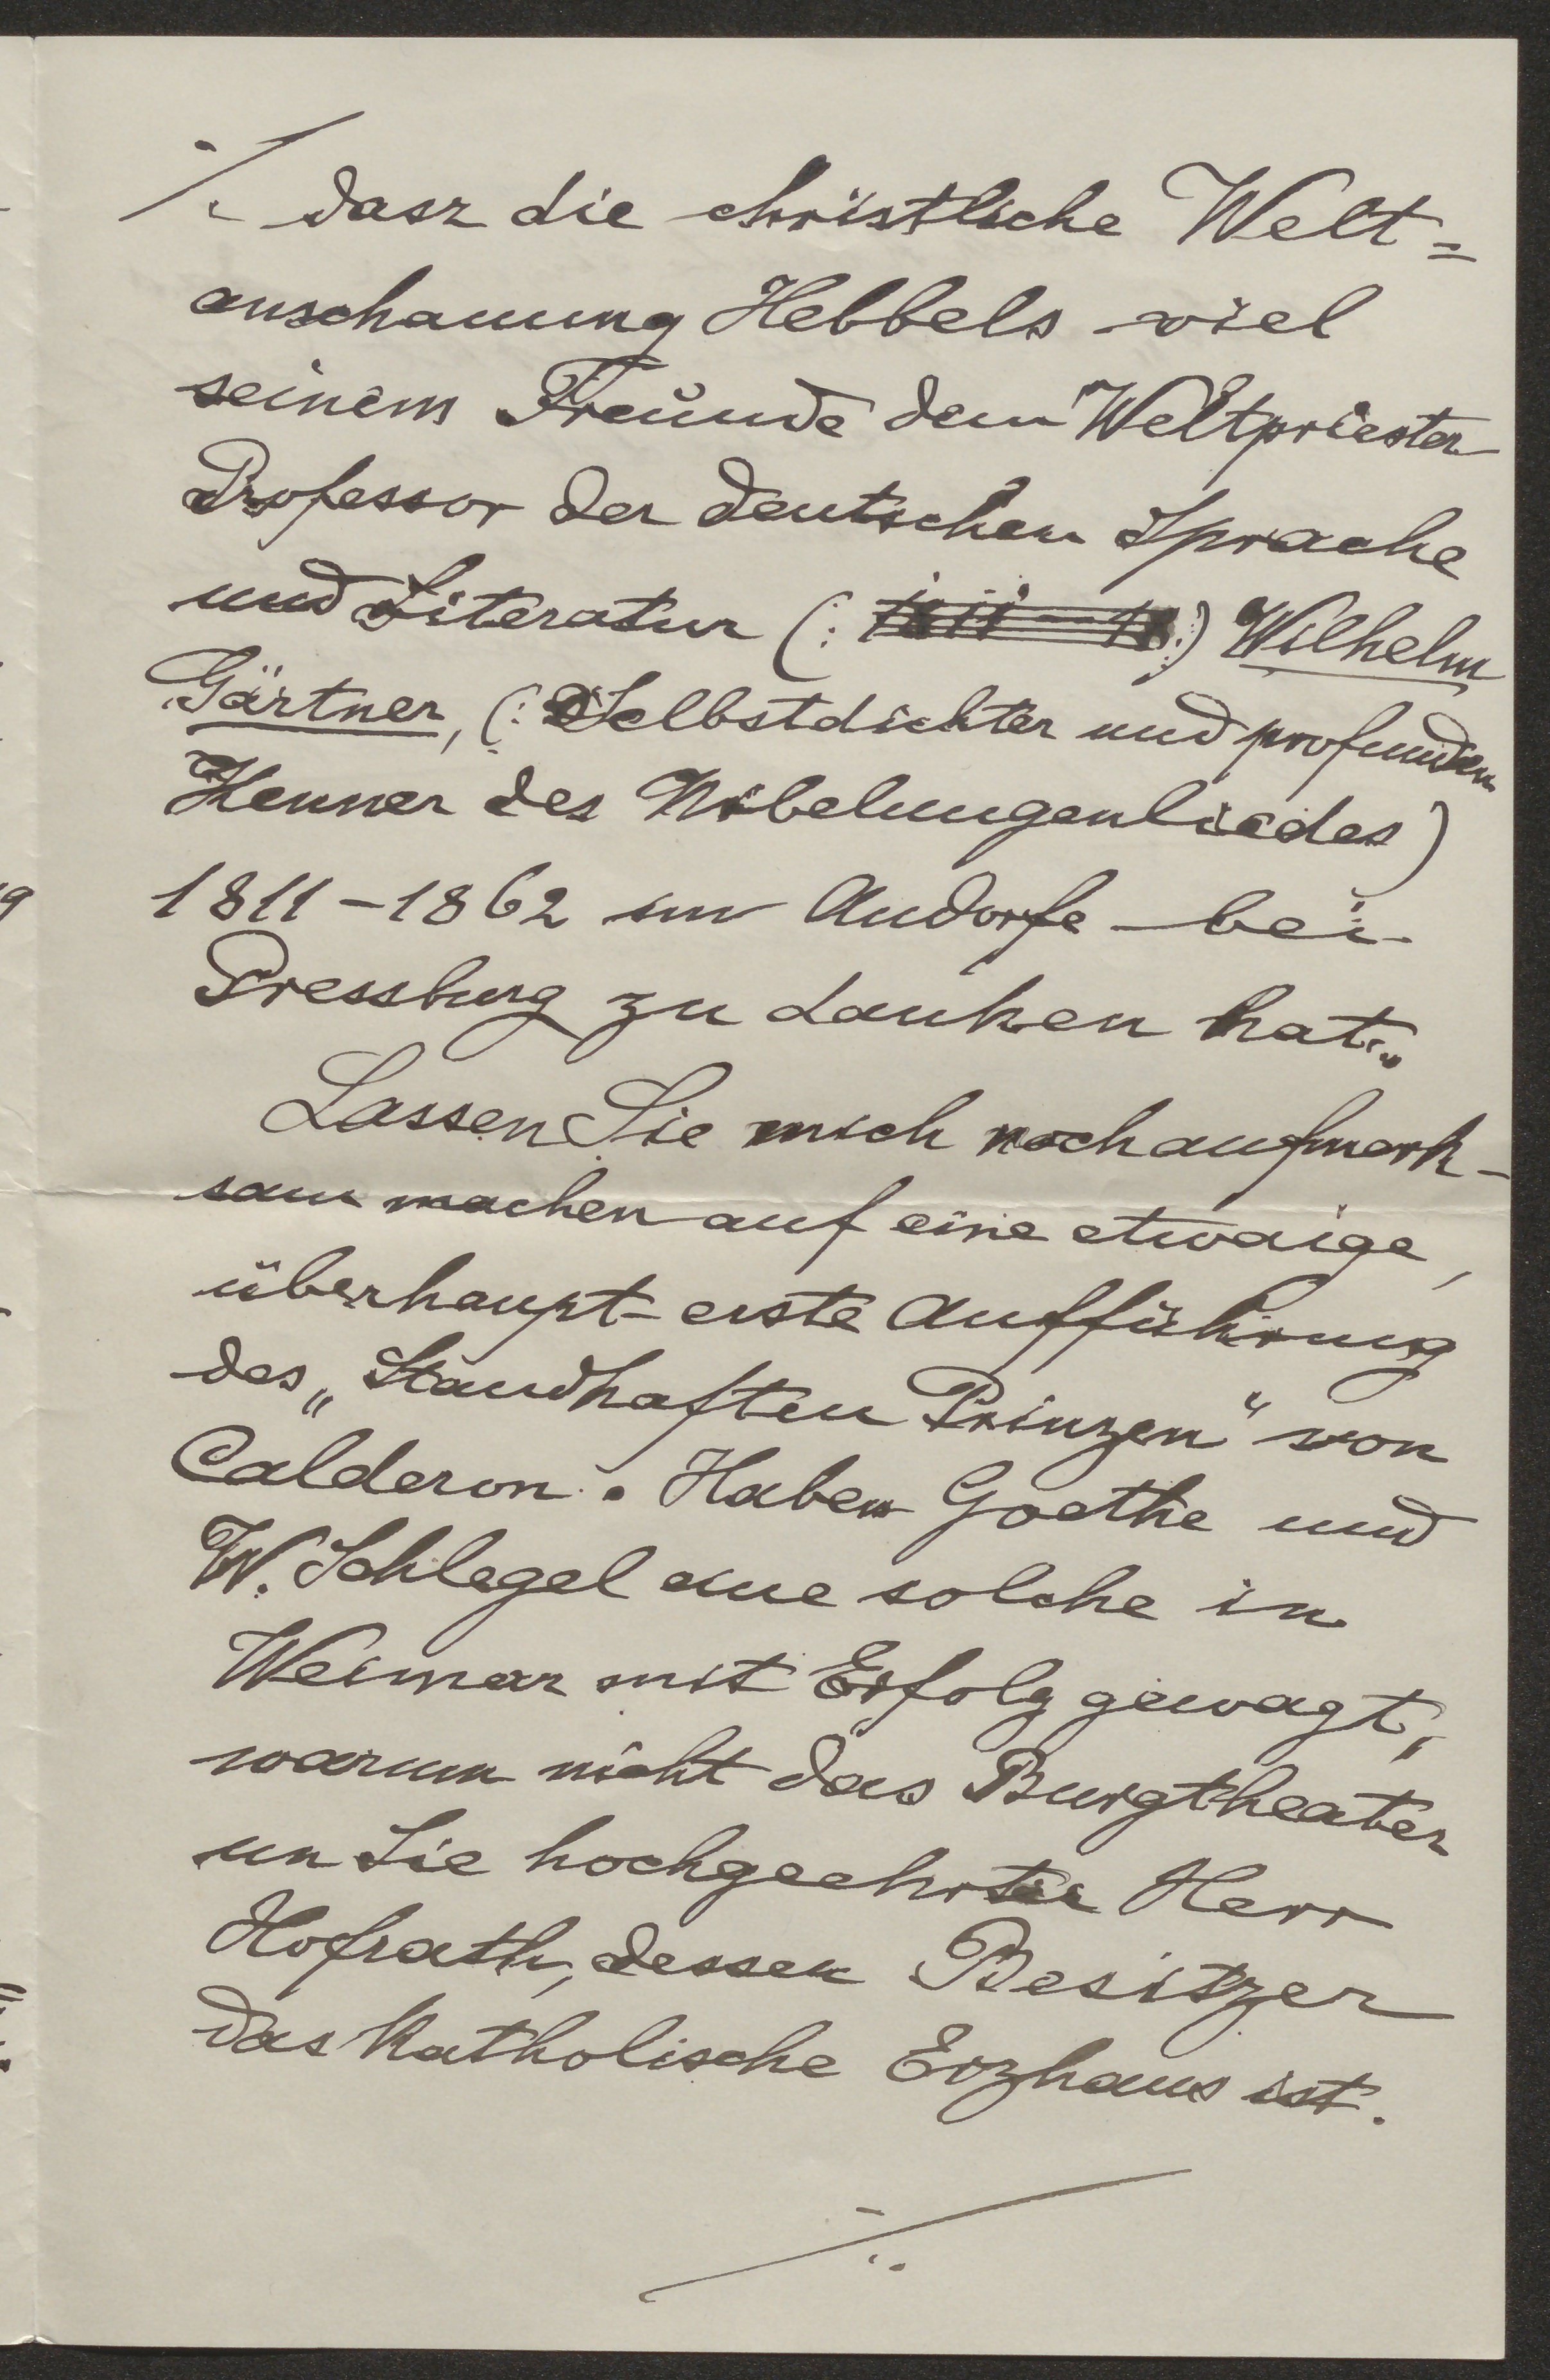 ./. dasz die christliche Welt=
anschauung Hebbels viel
seinem Freunde dem Weltpriester
Professor der deutschen Sprache
und Literatur (: :) Wilhelm
Gärtner, (: Selbstdichter und profunden
Kenner des Nibelungenliedes)
1811-1862 im Audorfe bei
Pressburg zu danken hat.
Lassen Sie mich noch aufmerk-
sam machen auf eine etwaige,
überhaupt erste Aufführung
des „Standhaften Prinzen“ von
Calderon. Haben Goethe und
W. Schlegel eine solche in
Weimar mit Erfolg gewagt,
warum nicht das Burgtheater
un Sie hochgeehrter Herr
Hofrath, dessen Besitzer
das Katholische Erzhaus ist.
./.